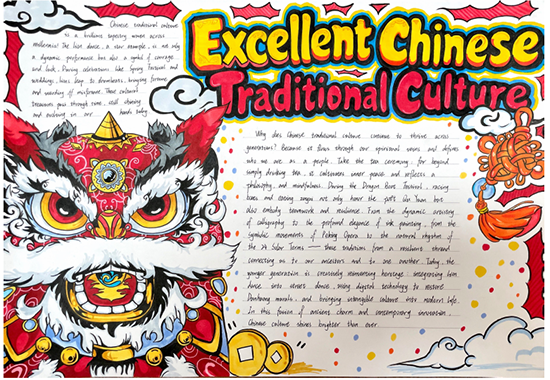 Excellent Chinese
Traditional Culture
Chinese traditional culture
is a brilliant tapestry woven across
millennia. The lion dance, a star example, is not only
a dynamic performance but also a symbol of courage
and luck. During celebrations like Spring Festival and
weddings, lions leap to drumbeats, bringing fortune
and warding off misfortune. These cultural
treasures pass through time, still shining
and evolving in our hands today.
Why does Chinese traditional culture continue to thrive across
generations? Because it flows through our spiritual veins and defines
who we are as a people. Take the tea ceremony, far beyond
simply drinking tea, it cultivates inner peace and reflects a
philosophy and mindfulness. During the Dragon Boat Festival, racing
boats and eating zongzi not only honor the poet Qu Yuan but
also embody teamwork and resilience. From the dynamic artistry
of calligraphy to the profound elegance of ink painting, from the
symbolic movements of Peking Opera to the natural rhythm of
the 24 Solar Terms — these traditions form a resilient strand
connecting us to our ancestors and to one another. Today, the
younger generation is creatively reinventing heritage, integrating lion
dance into street dance, using digital technology to restore
Dunhuang murals, and bringing intangible culture into modern life.
In this fusion of ancient charm and contemporary innovation,
Chinese culture shines brighter than ever.